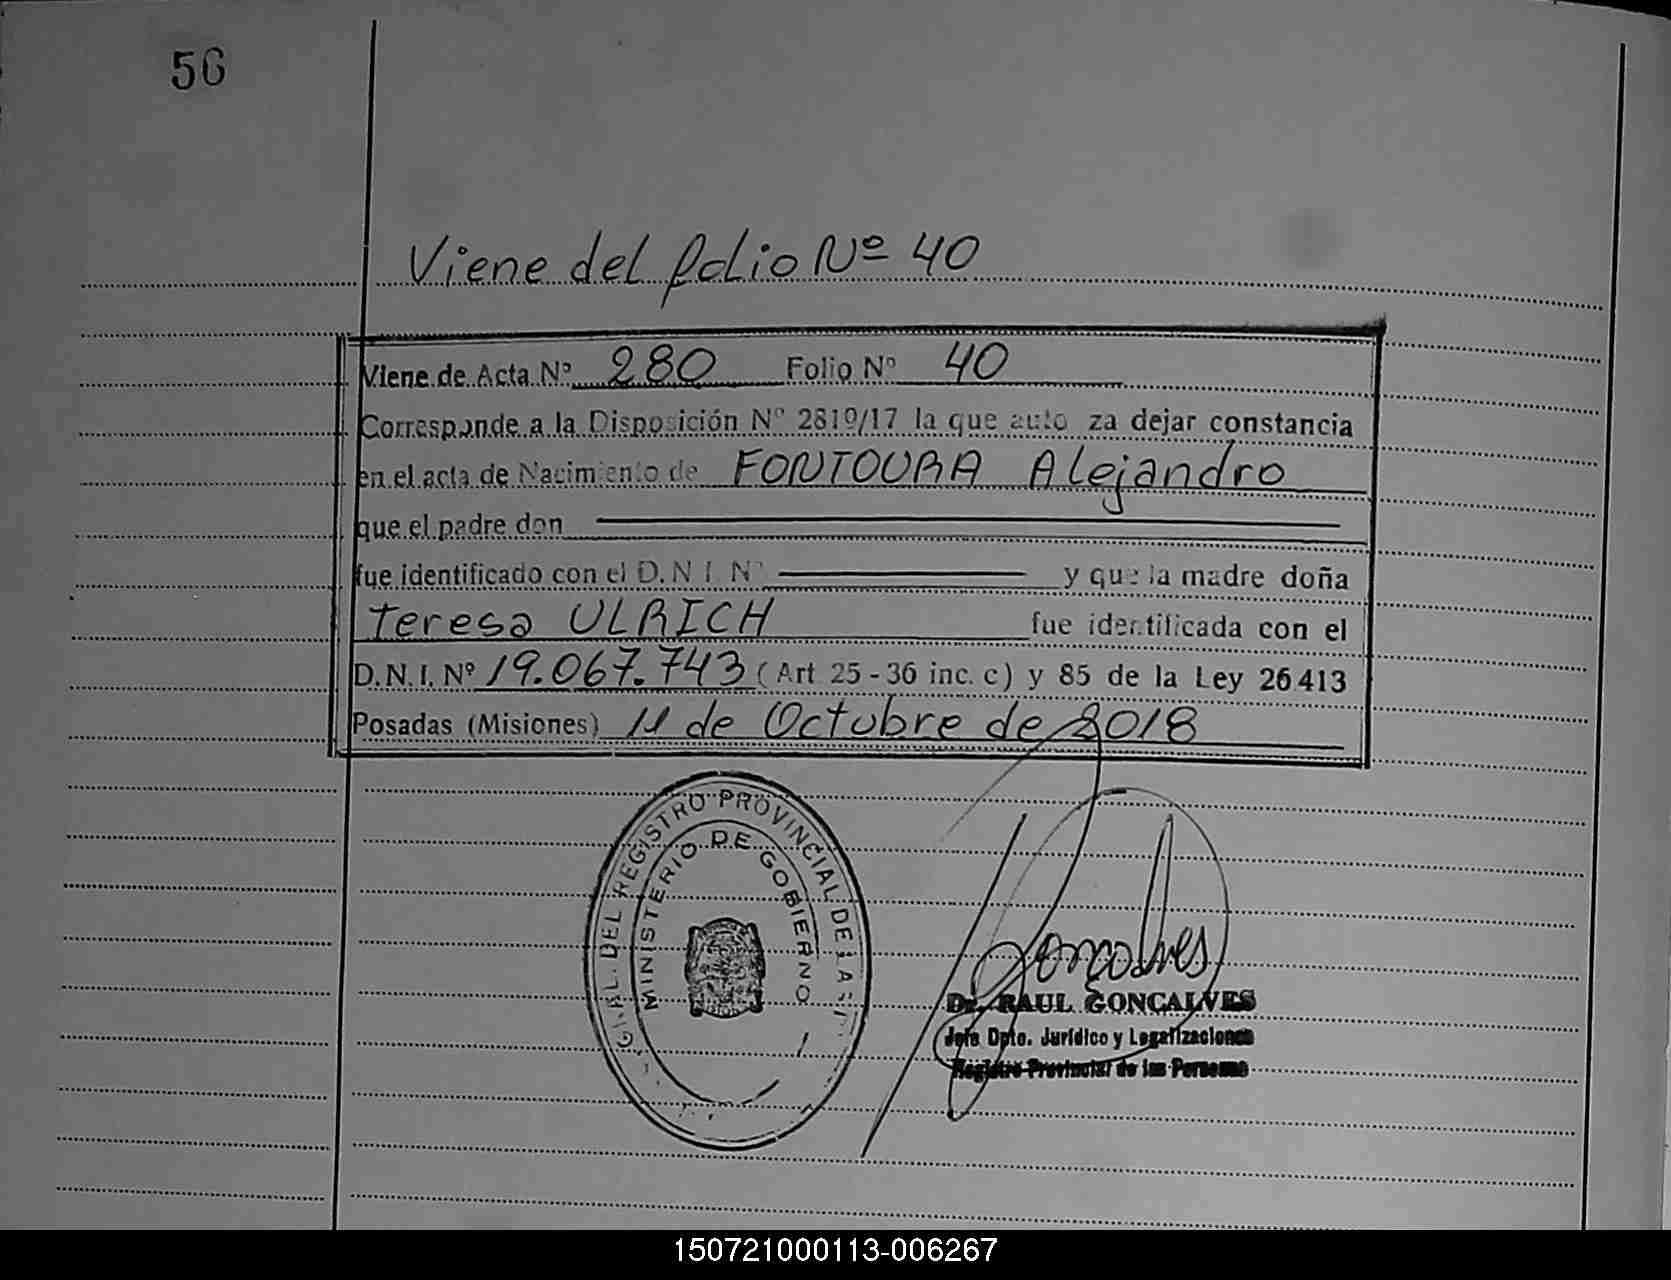 56
Viene del folio Nº 40
Viene de Acta Nº 280 Folio Nº 40
Corresponde a la Disposición Nº 2810/17 la que auto za dejar constancia
en el acta de Nacimiento de FONTOURA Alejandro
que el padre don
fue identificado con el D.N.I. Nº y que la madre doña
Teresa ULRICH fue identificada con el
D.N.I. Nº 19.067.743 (Art 25-36 inc. c) y 85 de la Ley 26413
Posadas (Misiones) 11 de Octubre de 2018
DEL REGISTRO PROVINCIAL DE LAS
MINISTERIO DE GOBIERNO
Goncalves
Dr. RAUL GONCALVES
Jefe Dpto. Jurídico y Legalizaciones
Registro Provincial de las Personas
150721000113-006267